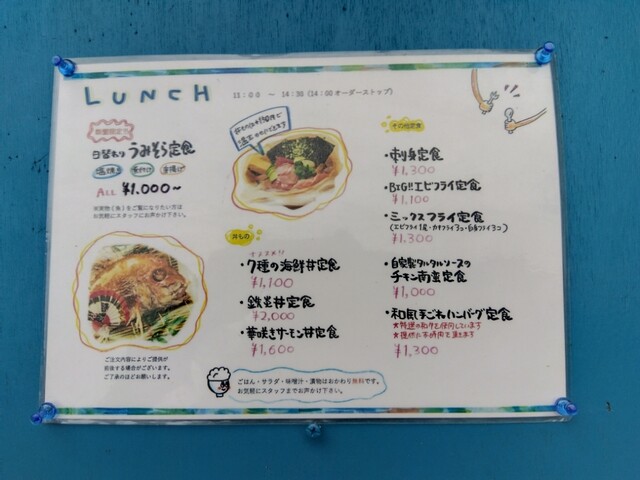 LUNCH
11:00 ～ 14:30 (14:00オーダーストップ)
数量限定
日替わり うみそら定食
塩焼き 煮付け 唐揚げ
ALL ¥1.000～
※実物（魚）をご覧になりたい方は
お気軽にスタッフにお声かけ下さい。
ご注文内容によりご提供が
前後する場合がございます。
ご了承のほどお願いします。
丼もの
オススメ!!
・7種の海鮮丼定食
¥1,100
丼定食
¥2,000
・華咲きサーモン丼定食
¥1,600
その他定食
・刺身定食
¥1,300
・BIG!!エビフライ定食
¥1,100
・ミックスフライ定食
(エビフライ1尾・カキフライ3コ・白身フライ3コ)
¥1,300
・自家製タルタルソースの
チキン南蛮定食
¥1,000
・和風手ごねハンバーグ定食
★特選の和牛を使用しています
★提供に お時間を頂きます
¥1,300
ごはん・サラダ・味噌汁・漬物はおかわり無料です。
お気軽にスタッフまでお声かけ下さい。